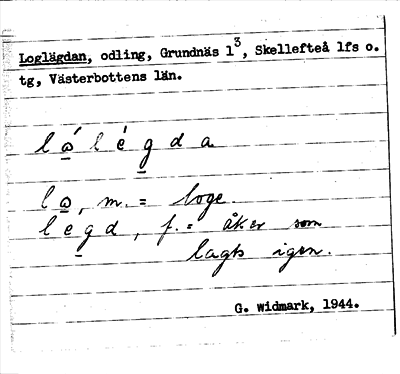 Loglägdan, odling, Grundnäs 1³, Skellefteå lfs o.
tg, Västerbottens län.
l o̲ ́ l é g̲ d a
l o̲, m. = loge
l e g̲ d, f. = åker som
lagts igen.
G. Widmark, 1944.